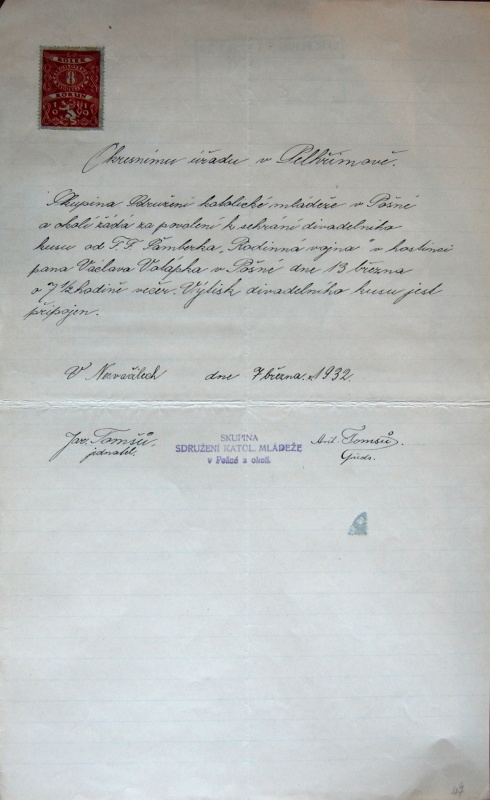 KOLEK
8
KORUN
Okresnímu úřadu v Pelhřimově.
Skupina Sdružení katolické mládeže v Pošné
a okolí žádá za povolení k sehrání divadelního
kusu od F. F. Šamberka „Rodinná vojna" v hostinci
pana Václava Volápka v Pošné dne 13 března
o 7 1/2 hodině večer. Výtisk divadelního kusu jest
připojen.
V Nesvačilech dne 7 března 1932.
Jar. Tomšů
jednatel.
SKUPINA
SDRUŽENÍ KATOL. MLÁDEŽE
v Pošné a okolí.
Ant. Tomšů
předs.